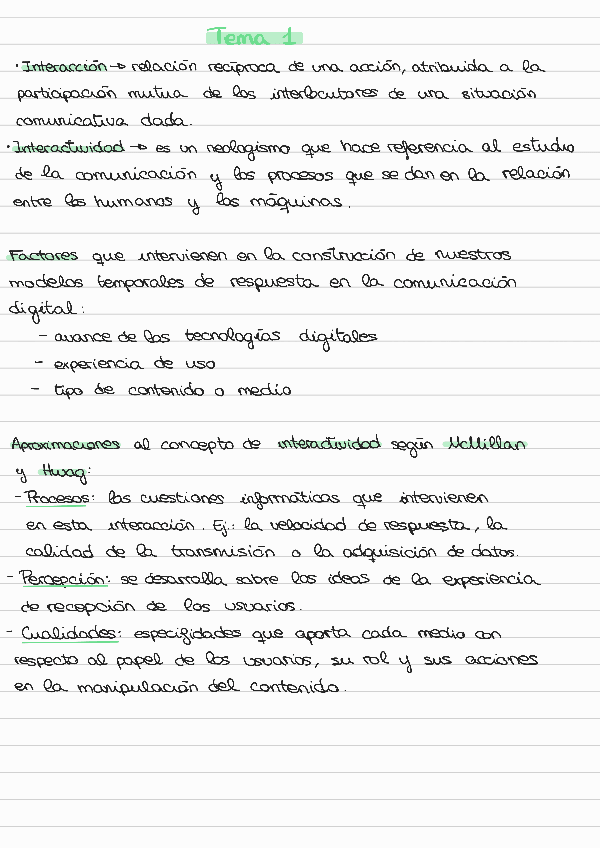 Tema 1
· Interacción → relación recíproca de una acción, atribuida a la
participación mutua de los interlocutores de una situación
comunicativa dada.
· Interactividad → es un neologismo que hace referencia al estudio
de la comunicación y los procesos que se dan en la relación
entre los humanos y las máquinas.
Factores que intervienen en la construcción de nuestros
modelos temporales de respuesta en la comunicación
digital:
- avance de las tecnologías digitales
- experiencia de uso
- tipo de contenido o medio
Aproximaciones al concepto de interactividad según McMillan
y Hwag:
- Procesos: las cuestiones informáticas que intervienen
en esta interacción. Ej.: la velocidad de respuesta, la
calidad de la transmisión o la adquisición de datos.
- Percepción: se desarrolla sobre las ideas de la experiencia
de recepción de los usuarios.
- Cualidades: especifidades que aporta cada medio con
respecto al papel de los usuarios, su rol y sus acciones
en la manipulación del contenido.